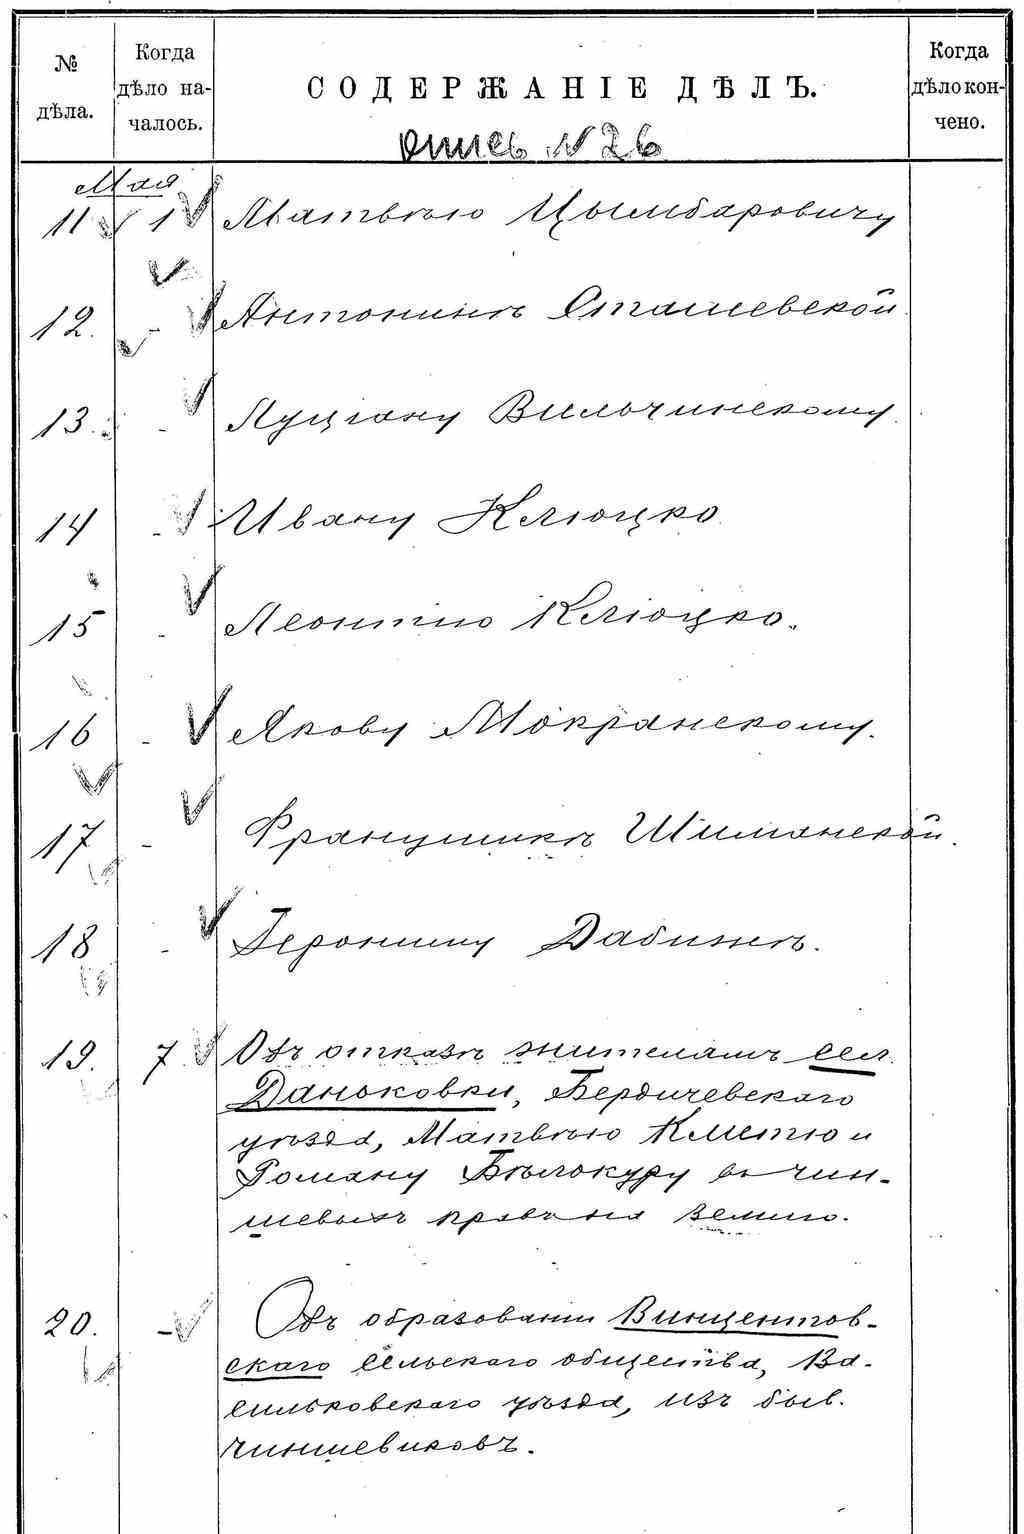 № дѣла.
Когда дѣло началось.
СОДЕРЖАНІЕ ДѢЛЪ.
Когда дѣло кончено.
опись N 26
Мая
11 1 Матвѣю Цымбаровичу
12. - Антонинѣ Сташевской.
13. - Луціану Вильчинскому.
14 - Ивану Клюцко
15 - Леонтію Клюцко.
16 - Якову Мокранскому.
17 - Францишкѣ Шиманской.
18 - Іерониму Дабижѣ.
19. 7. Объ отказѣ жителямъ сел.
Даньковки, Бердичевскаго
уѣзда, Матвѣю Кметю и
Роману Бѣлокуру въ чин-
шевыхъ правъ на землю.
20. - Объ образовании Винцентов-
скаго сельскаго общества, Ва-
сильковскаго уѣзда, изъ быв.
чиншевиковъ.